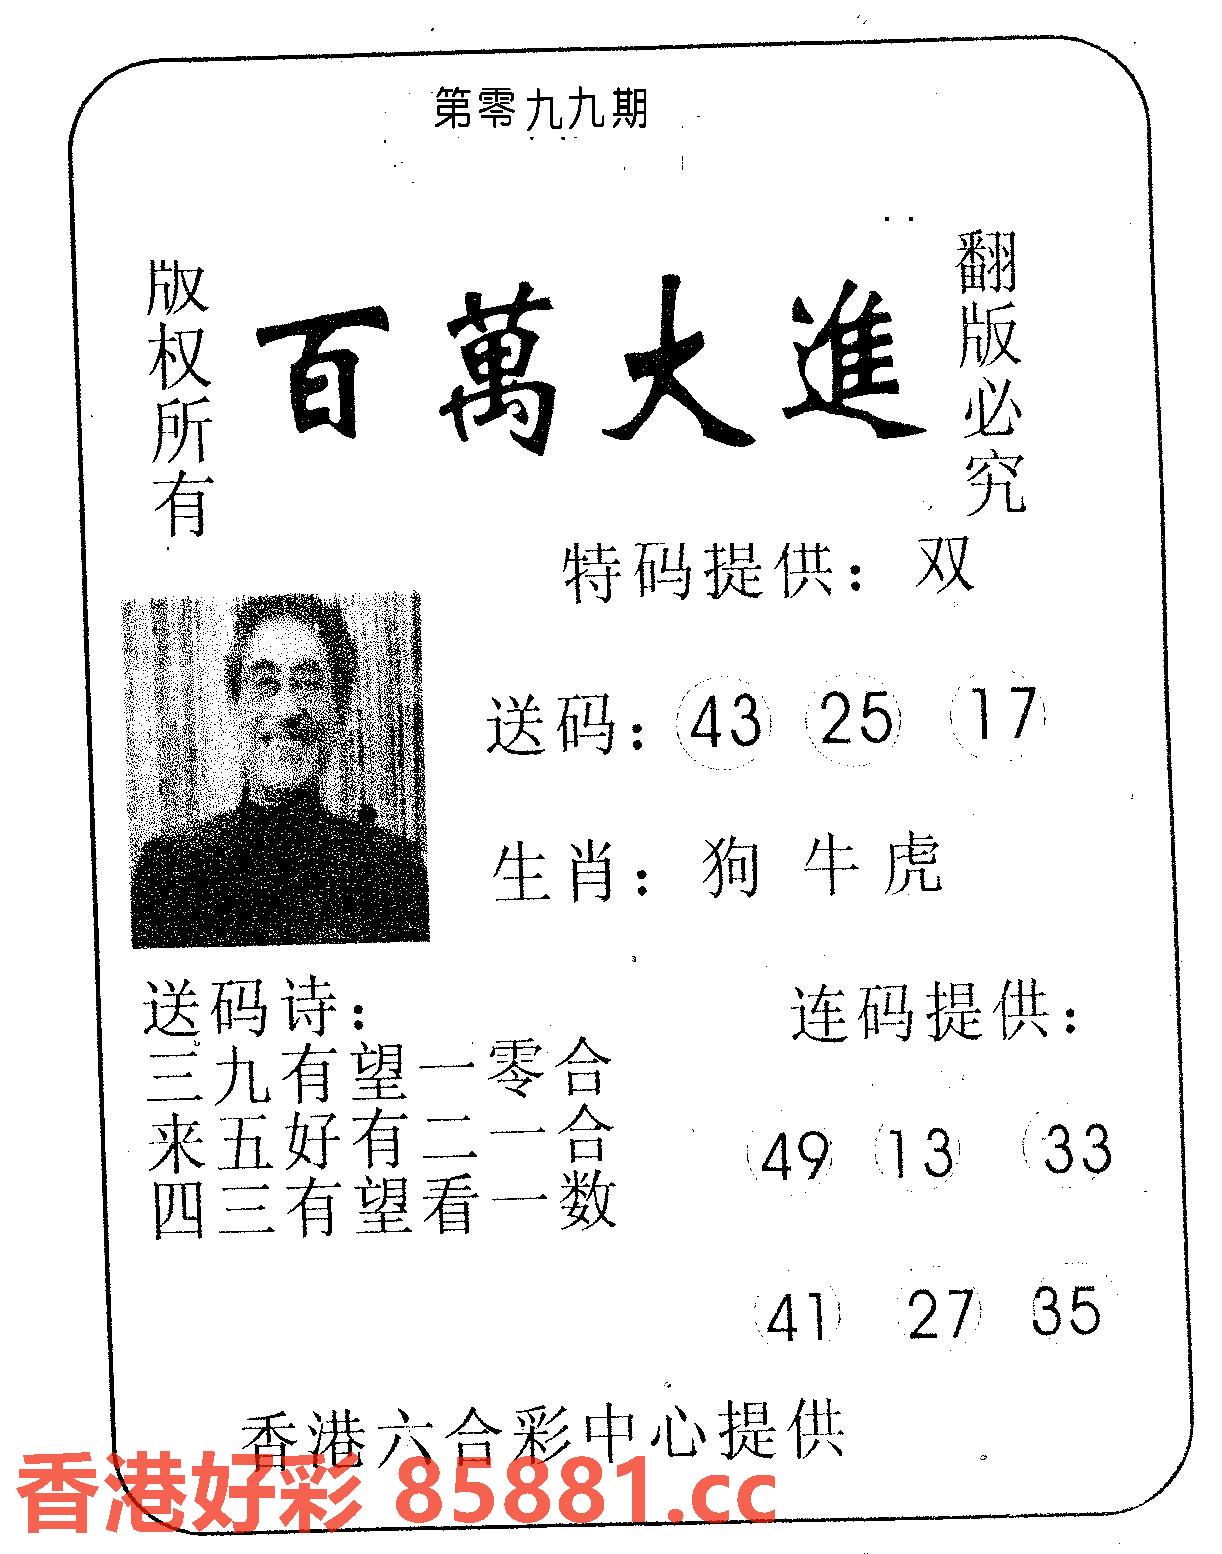 第零九九期
版权所有
百萬大進
翻版必究
特码提供：双
送码：43 25 17
生肖：狗 牛 虎
送码诗：
三九有望一零合
来五好有二一合
四三有望看一数
连码提供：
49 13 33
41 27 35
香港六合彩中心提供
香港好彩 85881.cc